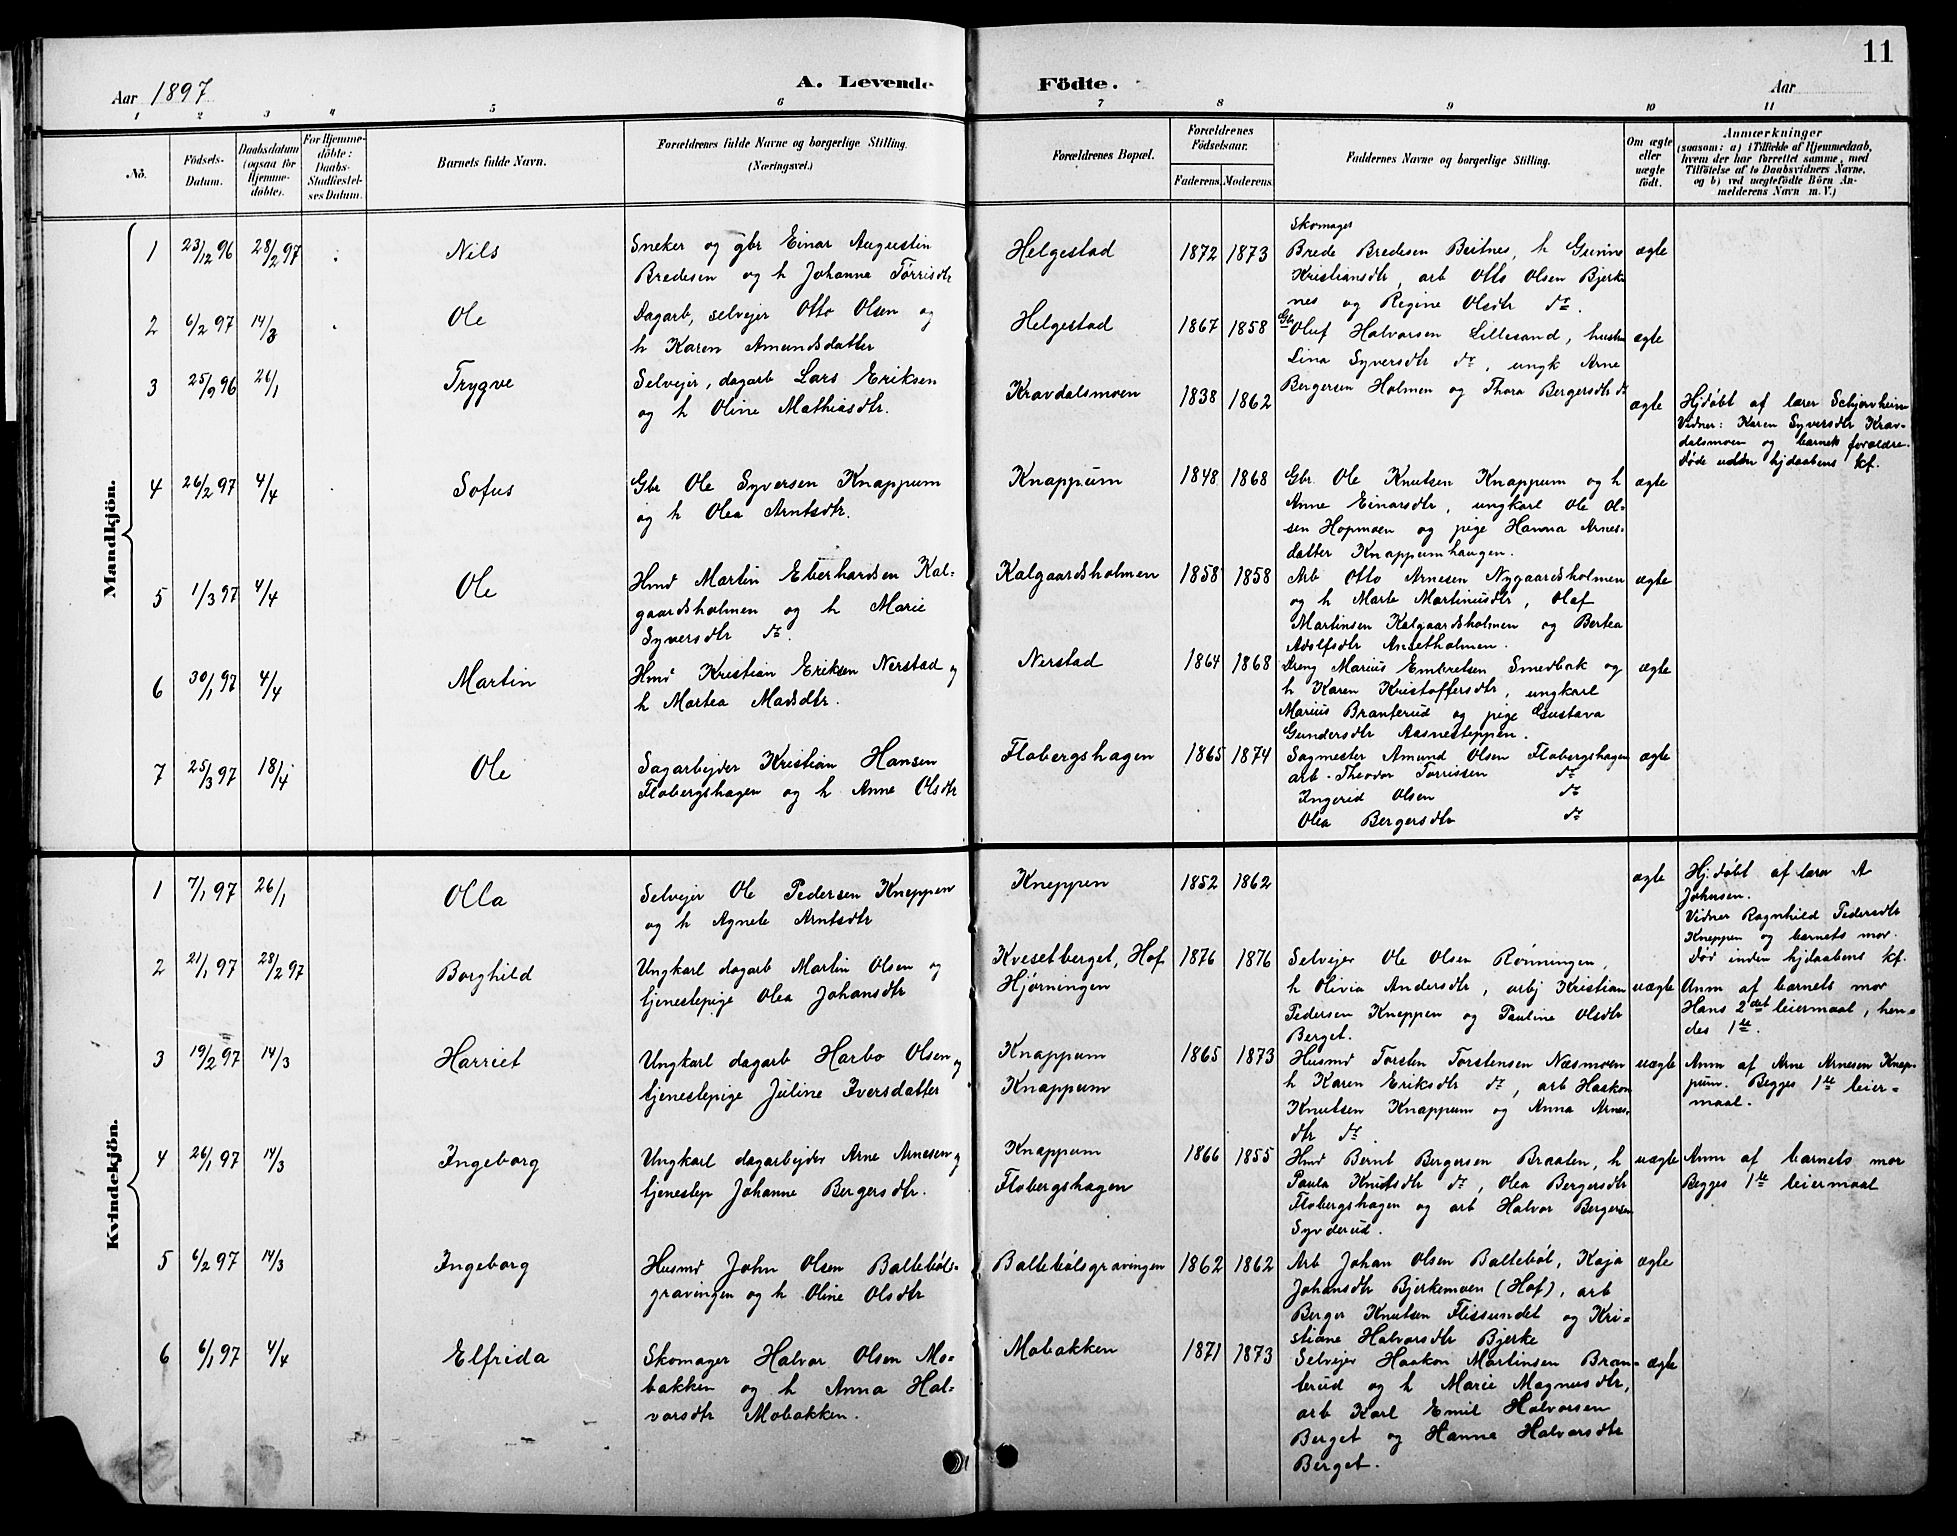 11
Aar 1897
A. Levende Födte.
Aar
1 2 3 4 5 6 7 8 9 10 11
No.
Födsels-Datum.
Daabsdatum (ogsaa for Hjemmedöbte).
For Hjemmedöbte: Daabs-Stadfæstelses Datum.
Barnets fulde Navn.
Forældrenes fulde Navne og borgerlige Stilling. (Næringsvei.)
Forældrenes Bopæl.
Forældrenes Födselsaar.
Faderens. Moderens.
Faddernes Navne og borgerlige Stilling.
Om ægte eller uægte født.
Anmærkninger
(saasom: a) i Tilfælde af Hjemmedaab, hvem der har forrettet samme, med Tilföielse af to Daabsvidners Navne, og b) ved uægtefödte Börn Anmelderens Navn m. V.)
Mandkjön.
1 23/12 96 28/2 97 Nils
Sneker og gbr Einar Augustin
Bredesen og h Johanne Torrisdtr
Helgestad 1872 1873
Skomager
Brede Bredesen Beitnes, h Gunine
Kristiansdtr, arb Otto Olsen Bjerke
nes og Regine Olsdtr do.
ægte
2 6/2 97 14/3 Ole
Dagarb, selvejer Otto Olsen og
h Karen Amundsdatter
Helgestad 1867 1858
Gbr Oluf Halvorsen Lillesand, hustru
Lina Syversdtr do, ungk Arne
Bergersen Holmen og Thora Bergersdtr do
ægte
3 25/9 96 26/1 Trygve
Selvejer, dagarb Lars Eriksen
og h Oline Mathiasdtr.
Kravdalsmoen 1838 1862
ægte
Hjdøbt af lærer Schjervheim
Vidner: Karen Syversdtr Krav-
dalsmoen og barnets forældre.
Døde uden hjdaabens kf.
4 26/2 97 4/4 Sofus
Gbr Ole Syversen Knappum
og h Olea Arntsdtr.
Knappum 1848 1868
Gbr. Ole Knutsen Knappum og h
Anne Einarsdtr, ungkarl Ole Ol-
sen Hopmoen og pige Hanna Arnes-
datter Knappumhaugen.
ægte
5 1/3 97 4/4 Ole
Hmd Martin Eberhardsen Kal-
gaardsholmen og h Marie
Syversdtr do.
Kalgaardsholmen 1858 1858
Arb Otto Arnesen Nygaardsholmen
og h Marte Martinusdtr, Olaf
Martinsen Kalgaardsholmen og Bertea
Adolfsdtr Arnetholmen.
ægte
6 30/1 97 4/4 Martin
Hmd Kristian Eriksen Nerstad og
h Martea Madsdtr.
Nerstad 1864 1868
Dreng Marius Embretsen Smedbak og
h Karen Kristoffersdtr, ungkarl
Marius Branterud og pige Gustava
Gundersdtr Aasnesteppen.
ægte
7 25/3 97 18/4 Ole
Sagarbejder Kristian Hansen
Flobergshagen og h Anne Olsdtr
Flobergshagen 1865 1874
Sagmester Amund Olsen Flobergshagen
arb. Theodor Torrissen do
Ingerid Olsen do
Olea Bergersdtr do
ægte
Kvindekjön.
1 7/1 97 26/1 Olla
Selvejer Ole Pedersen Kneppen
og h Agnete Arntsdtr
Kneppen 1852 1862
ægte
Hjdøbt af lærer A
Johnsen.
Vidner Ragnhild Pedersdtr
Kneppen og barnets mor.
Død inden hjdaabens kf.
2 21/1 97 28/2 97 Borghild
Ungkarl dagarb Martin Olsen og
tjenestepige Olea Johansdtr
Kvesetberget, Hof
Hjørningen
1876 1876
Selvejer Ole Olsen Rønningen,
h Olivia Andersdtr, arbj Kristian
Pedersen Kneppen og Pauline Olsdtr
Berget.
uægte
Anm af barnets mor
Hans 2det leiermaal, hen-
des 1ste.
3 19/2 97 14/3 Harriet
Ungkarl dagarb Harbo Olsen og
tjenestepige Juline Iversdatter
Knappum
Knappum
1865 1873
Husmd Torsten Torstensen Næsmoen
h Karen Eriksdtr do, arb Haakon
Knutsen Knappum og Anna Arnes-
dtr do.
uægte
Anm af Arne Arnesen Knap-
pum. Begges 1ste leier-
maal.
4 26/1 97 14/3 Ingeborg
Ungkarl dagarbejder Arne Arnesen og
tjenestep Johanne Bergersdtr.
Knappum
Flobergshagen
1866 1855
Hmd Bernt Bergersen Braaten, h
Paula Knutsdtr do, Olea Bergersdtr
Flobergshagen og arb Halvor Bergersen
Syvderud.
uægte
Anm af barnets mor
Begges 1ste leiermaal
5 6/2 97 14/3 Ingeborg
Husmd John Olsen Baltebøls-
gravingen og h Oline Olsdtr
Baltebølsgravingen 1862 1862
Arb Johan Olsen Baltebøl, Kaja
Johansdtr Bjerkemoen (Hof), arb
Berger Knutsen Flissundet og Kri-
stiane Halvorsdtr Bjerke
ægte
6 6/1 97 4/4 Elfrida
Skomager Halvor Olsen Mo-
bakken og h Anna Hal-
vorsdtr Mobakken.
Mobakken 1871 1873
Selvejer Haakon Martinsen Bran-
terud og h Marie Magnusdtr,
arb Karl Emil Halvorsen
Berget og Hanna Halvorsdtr
Berget.
ægte